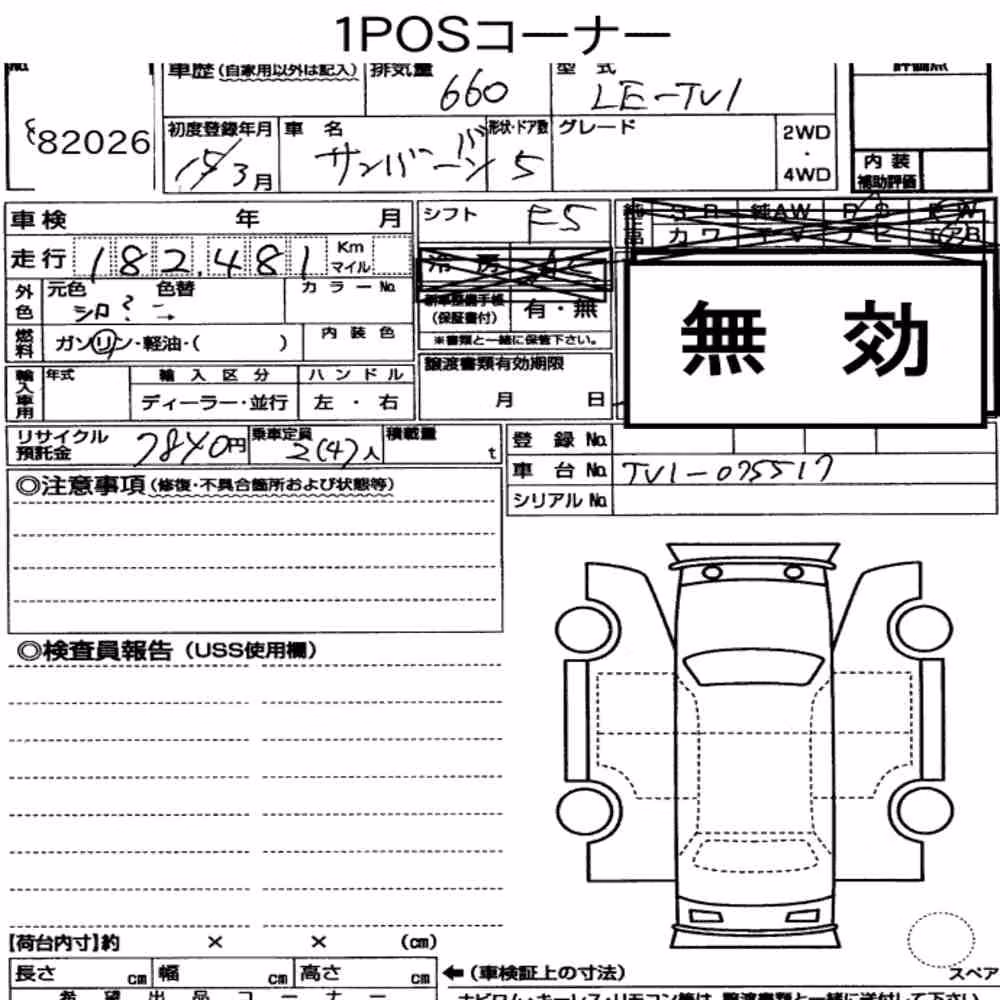 1POSコーナー
No.
82026
車歴(自家用以外は記入)
排気量
660
型式
LE-TV1
評価点
初度登録年月
15/3月
車名
サンバーバン
形状・ドア数
5
グレード
2WD
・
4WD
内装
補助評価
車検 年 月
シフト
F5
走行 182,481 Km マイル
冷房 AC
純 SR 純AW PS PW
カワ TV ナビ エアB
無効
外色
元色 色替
シロ ? →
カラーNo.
新車整備手帳
(保証書付)
有・無
※書類と一緒に保管下さい。
燃料
ガソリン・軽油・( )
内装色
譲渡書類有効期限
月 日
輸入車用
年式
輸入区分
ディーラー・並行
ハンドル
左・右
リサイクル
預託金
7840円
乗車定員
2(4)人
積載量
t
登録No.
車台No. TV1-075517
シリアルNo.
◎注意事項(修復・不具合箇所および状態等)
◎検査員報告(USS使用欄)
【荷台内寸】約 × × (cm)
長さ cm 幅 cm 高さ cm
←(車検証上の寸法)
スペア
希望出品コーナー
ナビロム・キーレス・リモコン等は、譲渡書類と一緒に送付して下さい